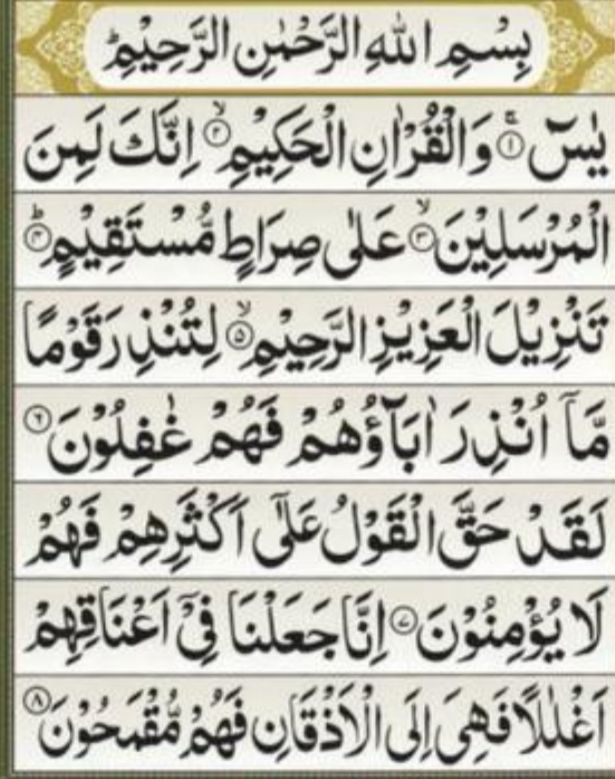 بِسْمِ اللهِ الرَّحْمٰنِ الرَّحِيْمِؕ
يٰسٓ ۚ‏﴿۱﴾ وَالْقُرْاٰنِ الْحَكِيْمِ ۙ‏﴿۲﴾ اِنَّكَ لَمِنَ
الْمُرْسَلِيْنَ ۙ‏﴿۳﴾ عَلٰى صِرَاطٍ مُّسْتَقِيْمٍ ؕ‏﴿۴﴾
تَنْزِيْلَ الْعَزِيْزِ الرَّحِيْمِ ۙ‏﴿۵﴾ لِتُنْذِرَ قَوْمًا
مَّاۤ اُنْذِرَ اٰبَآؤُهُمْ فَهُمْ غٰفِلُوْنَ ﴿۶﴾
لَقَدْ حَقَّ الْقَوْلُ عَلٰٓى اَكْثَرِهِمْ فَهُمْ
لَا يُؤْمِنُوْنَ ﴿۷﴾ اِنَّا جَعَلْنَا فِيْٓ اَعْنَاقِهِمْ
اَغْلٰلًا فَهِىَ اِلَى الْاَذْقَانِ فَهُمْ مُّقْمَحُوْنَ ﴿۸﴾